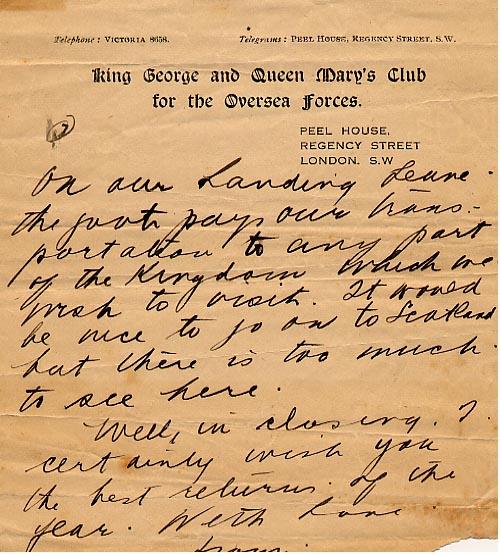 Telephone: VICTORIA 8658.
Telegrams: PEEL HOUSE, REGENCY STREET, S.W.
King George and Queen Mary's Club
for the Oversea Forces.
PEEL HOUSE,
REGENCY STREET
LONDON. S.W
On our Landing Leave
the govt pays our trans-
portation to any part
of the Kingdom which we
wish to visit. It would
be nice to go on to Scotland
but there is too much
to see here.
Well, in closing. I
certainly wish you
the best returns of the
year. With Love
from